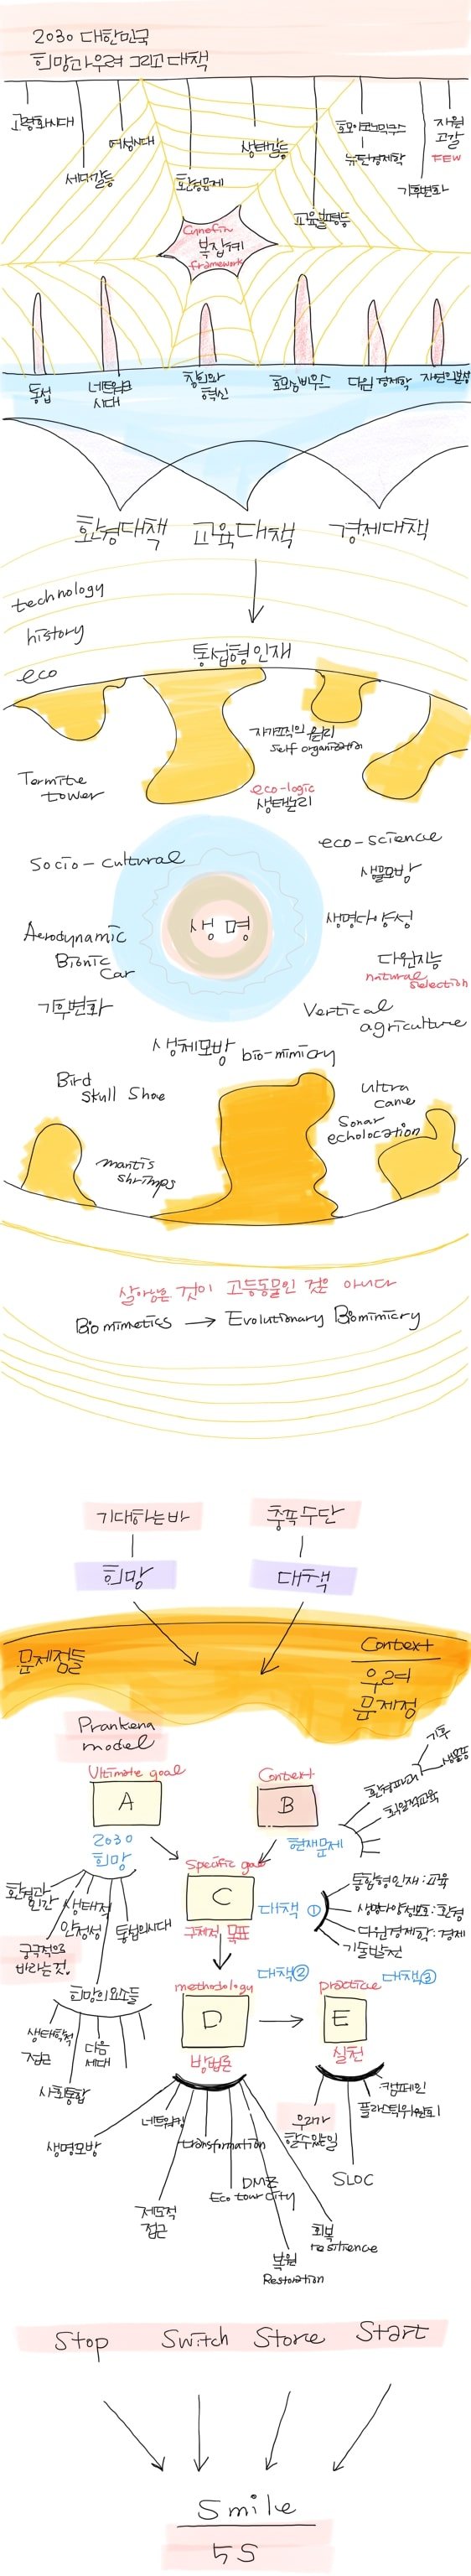 2030 대한민국
희망과 우려 그리고 대책
고령화시대
세대갈등
여성시대
환경문제
생태갈등
교육불평등
호모이코노미쿠스
뉴턴경제학
기후변화
자원
고갈
FEW
Cynefin
복잡계
framework
통섭
네트워크
시대
창의와
혁신
호모심비우스
다윈 경제학
환경대책
교육대책
경제대책
technology
history
eco
통섭형 인재
자기조직의 원리
self organization
Termite
tower
eco-logic
생태논리
Socio-cultural
eco-science
생물모방
생명
생명다양성
Aerodynamic
Bionic
Car
다윈지능
natural
selection
기후변화
Vertical
agriculture
생체모방 bio-mimicry
Bird
Skull Shoe
ultra
cane
Sonar
echolocation
mantis
shrimps
살아남은 것이 고등동물인 것은 아니다
Biomimetics → Evolutionary Biomimicry
기대하는바
충족수단
희망
대책
문제점들
Context
우려
문제점
Prankena
model
Ultimate goal
A
2030
희망
Context
B
현재문제
환경파괴
기후
생물종
획일적교육
Specific goal
C
구체적 목표
대책 ①
통합형인재:교육
생명다양성보호:환경
다윈경제학:경제
기술발전
환경과
인간
생태적
안정성
통섭의시대
궁극적으로
바라는것.
희망의요소들
생태학적
접근
다음
세대
사회통합
methodology
대책②
D
방법론
practice
대책③
E
실천
생명모방
네트워킹
제도적
접근
transformation
DMZ
Eco tour city
복원
Restoration
회복
resilience
우리가
할수있는일
SLOC
캠페인
플라스틱위원회
Stop
Switch
Store
Start
Smile
5S